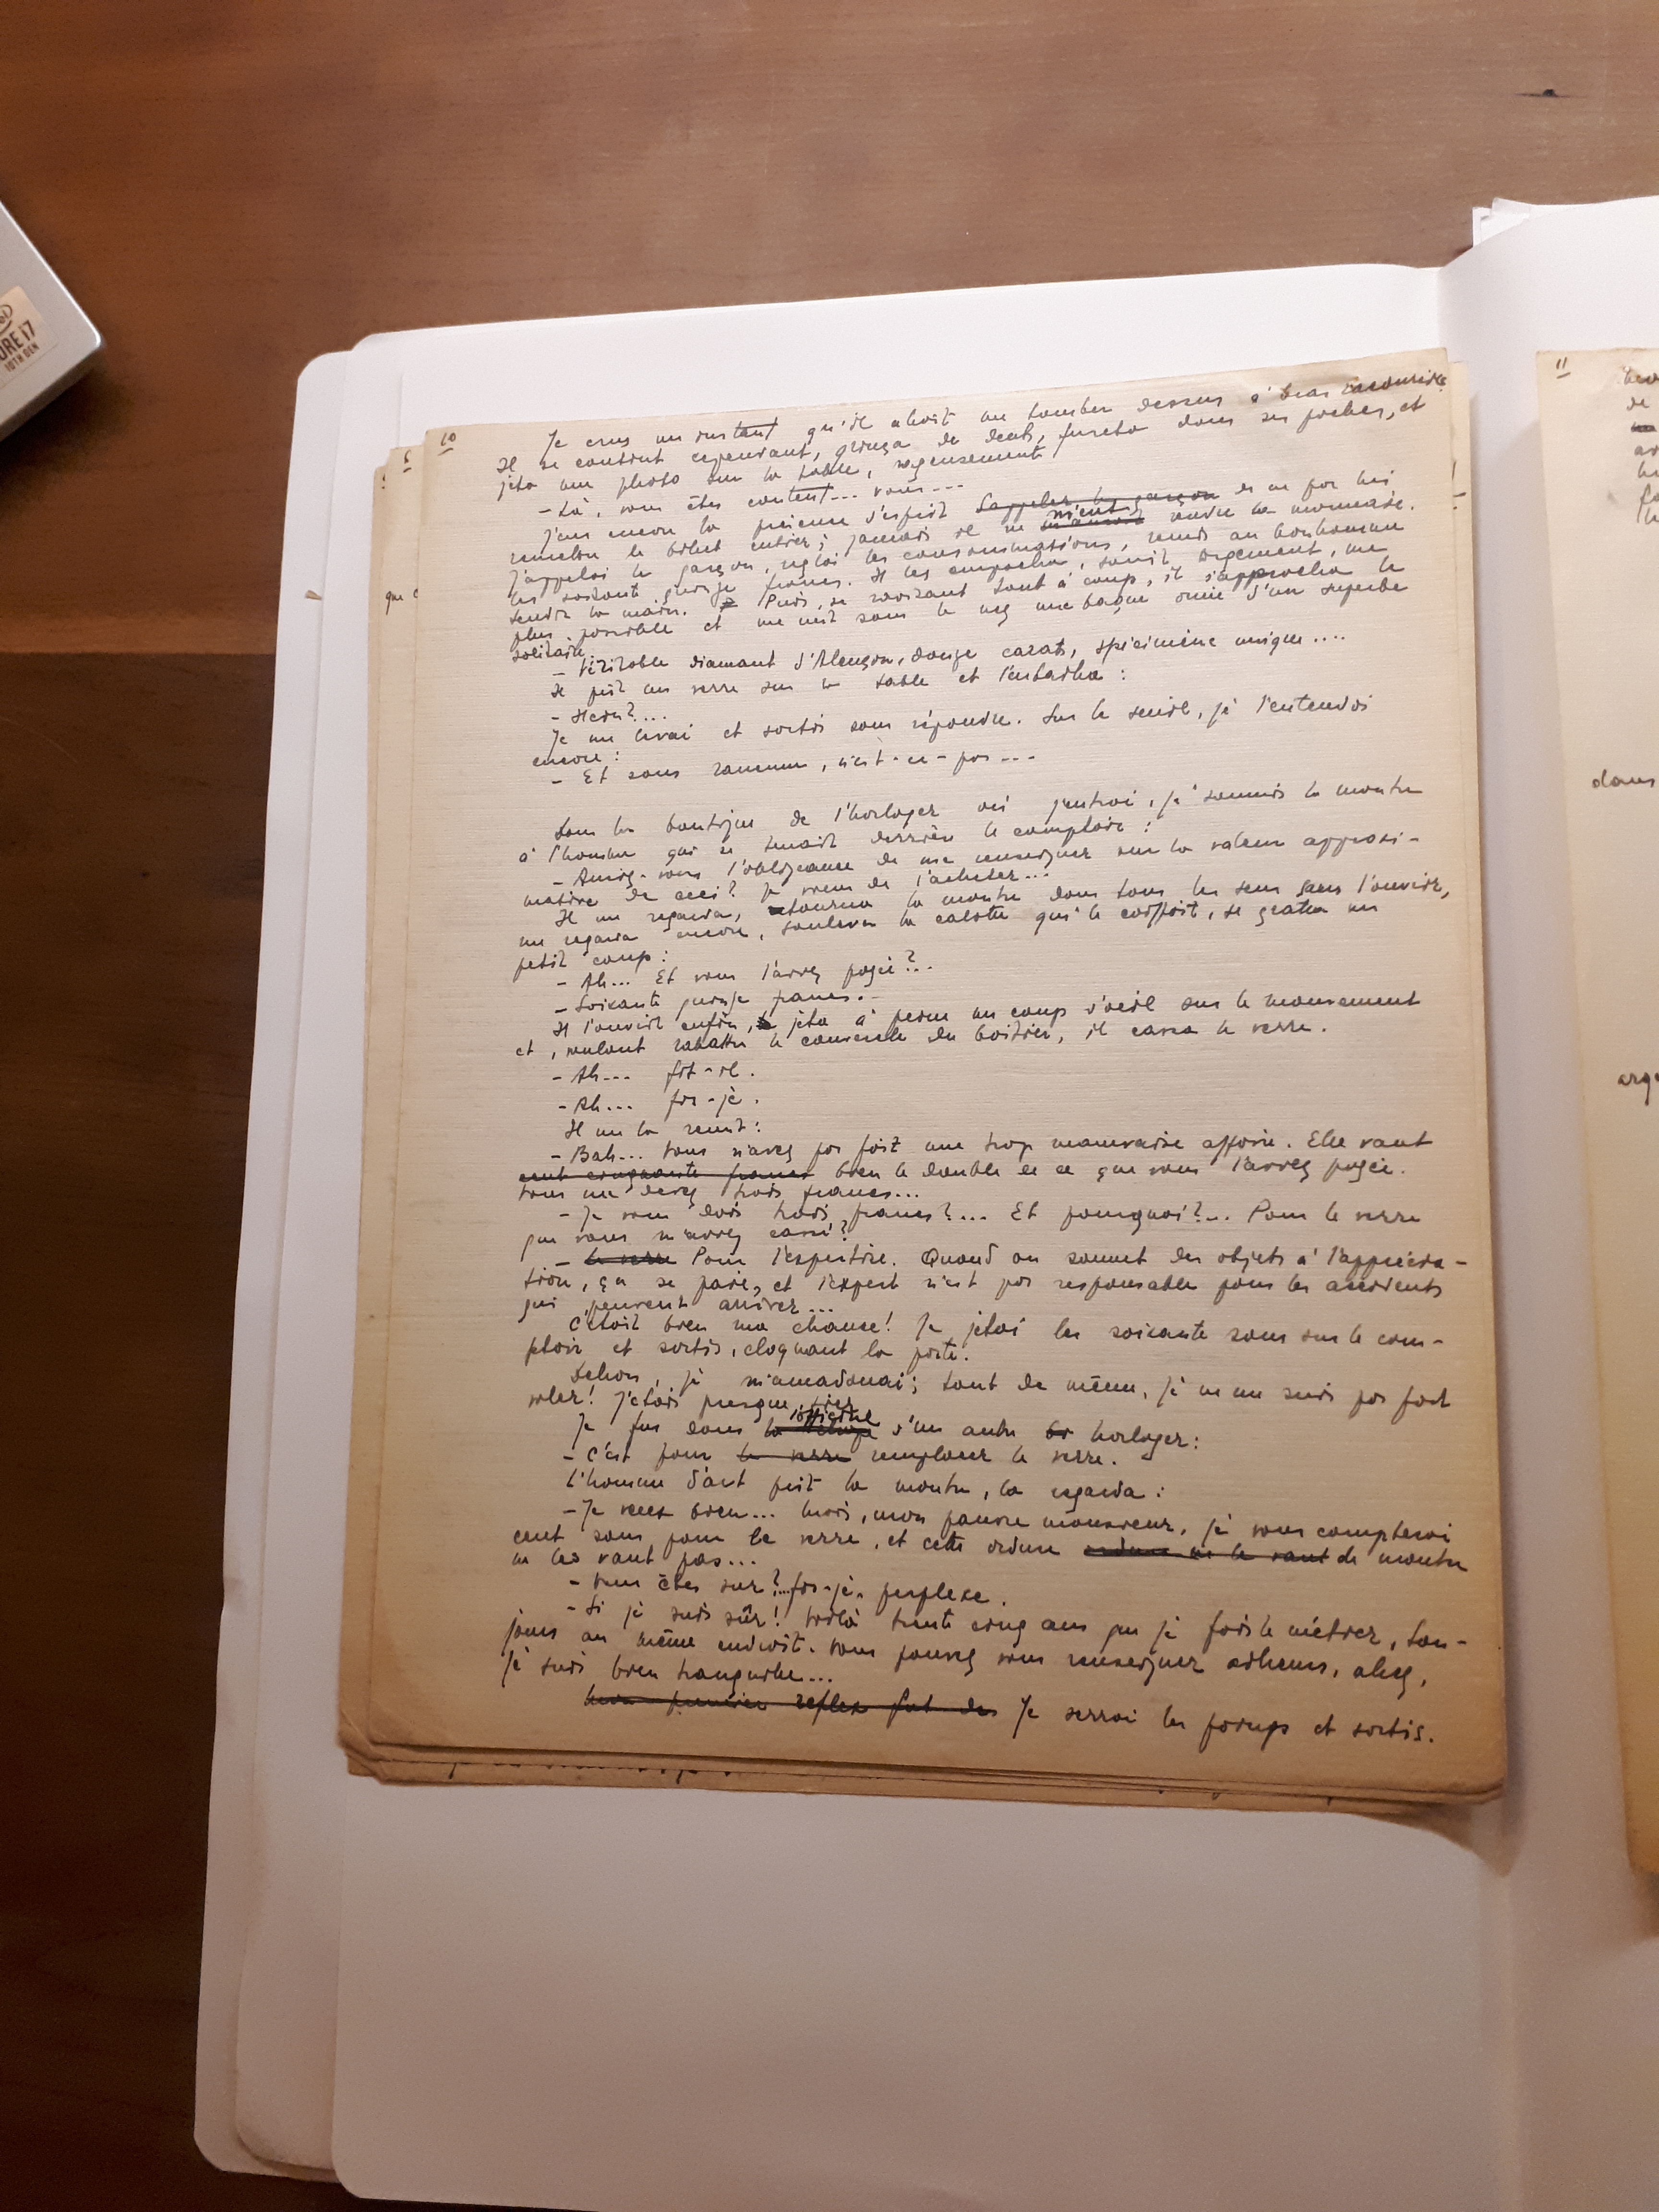 10
Je crus un instant qu'il allait me tomber dessus à bras raccourcis.
Il se contint cependant, grinça de dents, fureta dans ses poches, et
jeta une photo sur la table, rageusement
- Là, vous êtes content... vous...
J'eus encore la présence d'esprit d'appeler le garçon de ne pas lui
remettre le billet entier; jamais il ne m'eut rendre la monnaie.
J'appelai le garçon, réglai les consommations, remis au bonhomme
les soixante quinze francs. Il les empocha, sourit largement, me
tendit la main. Puis, se ravisant tout à coup, il s'approcha le
plus possible et me mit sous le nez une bague ornée d'un superbe
solitaire.
- Véritable diamant d'Alençon, douze carats, spécimène unique....
Il prit un verre sur la table et l'entailla :
- Hein?....
Je me levai et sortis sans répondre. Sur le seuil, je l'entendis
encore :
- Et sans rancune, n'est-ce-pas...
Dans la boutique de l'horloger où j'entrai, je soumis la montre
à l'homme qui se tenait derrière le comptoir :
- Auriez-vous l'obligeance de me renseigner sur la valeur approxi-
mative de ceci? Je viens de l'acheter...
Il me regarda, retourna la montre dans tous les sens sans l'ouvrir,
me regarda encore, souleva la calotte qui le coiffait, se gratta un
petit coup :
- Ah... Et vous l'avez payée?..
- Soixante quinze francs.-
Il l'ouvrit enfin, jeta à peine un coup d'oeil sur le mouvement
et, voulant rabattre le couvercle du boitier, il cassa le verre.
- Ah... fit-il.
- Ah... fis-je.
Il me la remit :
- Bah... Vous n'avez pas fait une trop mauvaise affaire. Elle vaut
cent cinquante francs bien le double de ce que vous l'avez payée.
Vous me devez trois francs...
- Je vous dois trois francs?... Et pourquoi?... Pour le verre
que vous m'avez cassé?
- le verre Pour l'expertise. Quand on soumet des objets à l'apprécia-
tion, ça se paie, et l'expert n'est pas responsable pour les accidents
qui peuvent arriver...
C'était bien ma chance! Je jetai les soixante sous sur le comp-
ptoir et sortis, claquant la porte.
Dehors, je m'amadouai; tout de même, je ne me suis pas fait
voler! J'étais presque fier
l'officine
Je fus dans la d'un autre horloger :
- C'est pour le verre remplacer le verre.
L'homme d'art prit la montre, la regarda :
- Je veux bien... Mais, mon pauvre monsieur, je vous compterai
cent sous pour le verre, et cette ordure ordure ne le vaut de montre
ne les vaut pas...
- Vous êtes sur?...fis-je, perplexe.
- Si je suis sûr! Voilà trente cinq ans que je fais le métier, tou-
jours au même endroit. Vous pouvez vous renseigner ailleurs, allez,
je suis bien tranquille...
Mon premier reflex fut de Je serrai les poings et sortis.
11
de
que
dans
arge
CORE i7
10TH GEN